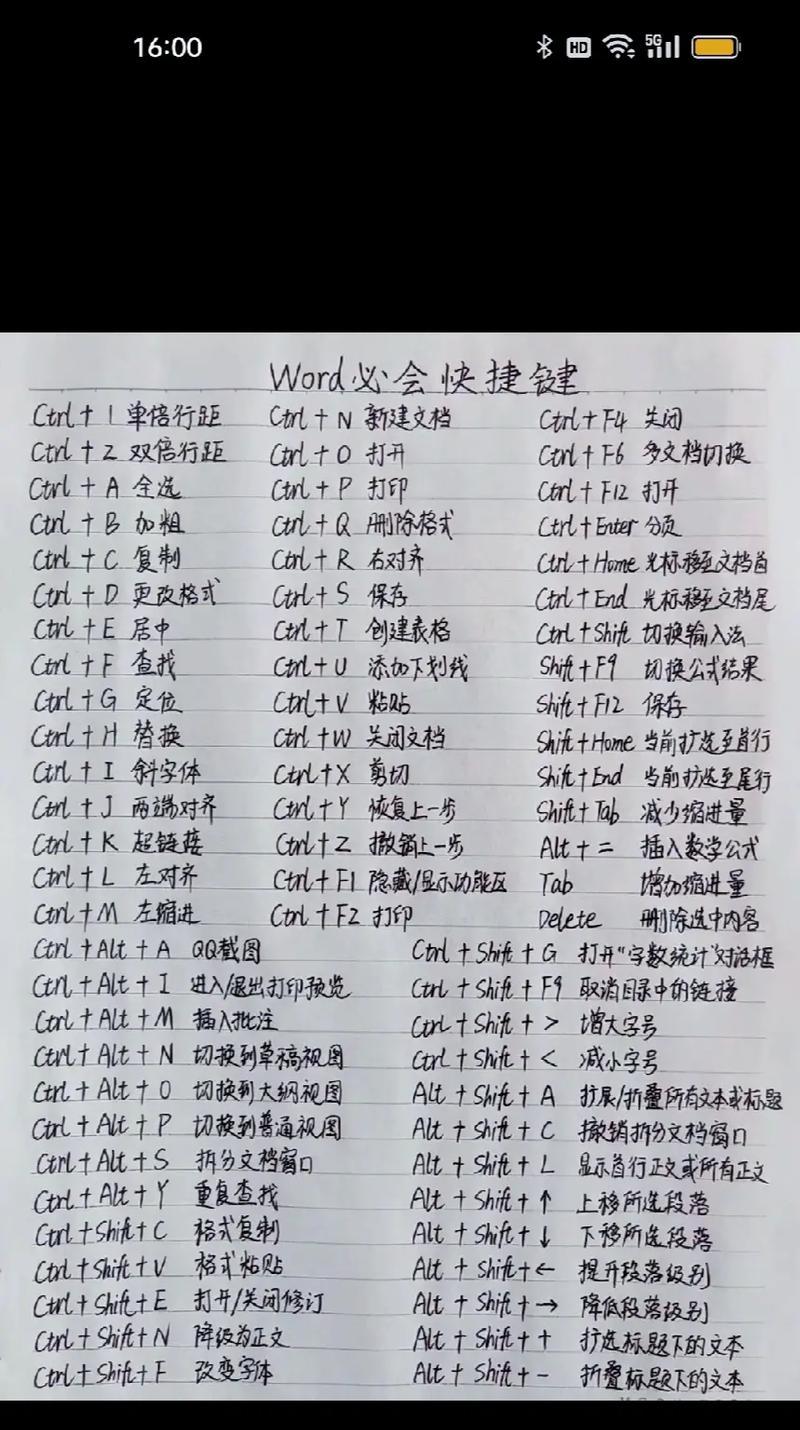 16:00
HD 5G
Word必会快捷键
Ctrl+1 单倍行距 Ctrl+N 新建文档 Ctrl+F4 关闭
Ctrl+2 双倍行距 Ctrl+O 打开 Ctrl+F6 多文档切换
Ctrl+A 全选 Ctrl+P 打印 Ctrl+F12 打开
Ctrl+B 加粗 Ctrl+Q 删除格式 Ctrl+Enter 分页
Ctrl+C 复制 Ctrl+R 右对齐 Ctrl+Home 光标移至文档首
Ctrl+D 更改格式 Ctrl+S 保存 Ctrl+End 光标移至文档尾
Ctrl+E 居中 Ctrl+T 创建表格 Ctrl+Shift 切换输入法
Ctrl+F 查找 Ctrl+U 添加下划线 Shift+F9 切换公式结果
Ctrl+G 定位 Ctrl+V 粘贴 Shift+F12 保存
Ctrl+H 替换 Ctrl+W 关闭文档 Shift+Home 当前扩选至首行
Ctrl+I 斜字体 Ctrl+X 剪切 Shift+End 当前扩选至尾行
Ctrl+J 两端对齐 Ctrl+Y 恢复上一步 Shift+Tab 减少缩进量
Ctrl+K 超链接 Ctrl+Z 撤销上一步 Alt+= 插入数学公式
Ctrl+L 左对齐 Ctrl+F1 隐藏/显示功能区 Tab 增加缩进量
Ctrl+M 左缩进 Ctrl+F2 打印 Delete 删除选中内容
Ctrl+Alt+A QQ截图 Ctrl+Shift+G 打开“字数统计”对话框
Ctrl+Alt+I 进入/退出打印预览 Ctrl+Shift+F9 取消目录中的链接
Ctrl+Alt+M 插入批注 Ctrl+Shift+> 增大字号
Ctrl+Alt+N 切换到草稿视图 Ctrl+Shift+< 减小字号
Ctrl+Alt+O 切换到大纲视图 Alt+Shift+A 扩展/折叠所有文本或标题
Ctrl+Alt+P 切换到普通视图 Alt+Shift+C 撤销拆分文档窗口
Ctrl+Alt+S 拆分文档窗口 Alt+Shift+L 显示首行正文或所有正文
Ctrl+Alt+Y 重复查找 Alt+Shift+↑ 上移所选段落
Ctrl+Shift+C 格式复制 Alt+Shift+↓ 下移所选段落
Ctrl+Shift+V 格式粘贴 Alt+Shift+← 提升段落级别
Ctrl+Shift+E 打开/关闭修订 Alt+Shift+→ 降低段落级别
Ctrl+Shift+N 降级为正文 Alt+Shift++ 扩选标题下的文本
Ctrl+Shift+F 改变字体 Alt+Shift+- 折叠标题下的文本